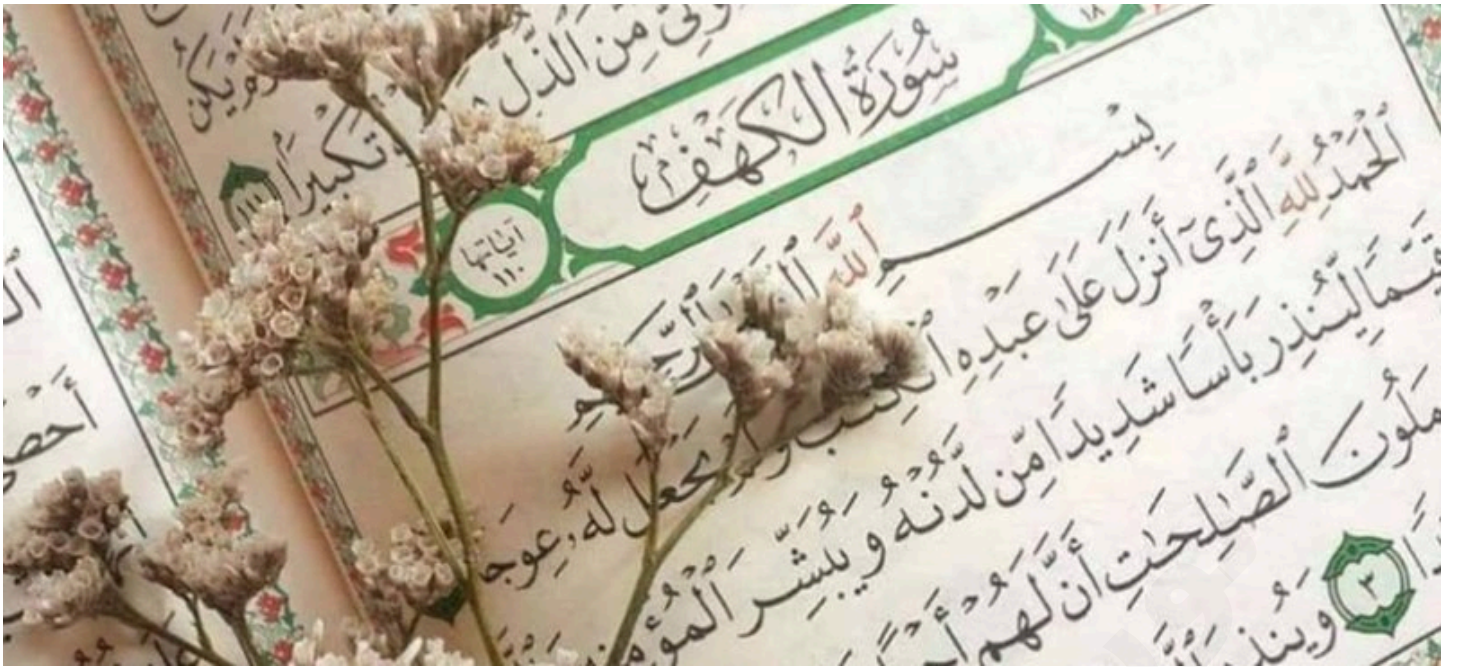 وَلِىٌّ مِّنَ ٱلذُّلِّ
تَكْبِيرًا ١١١
١٨
سُورَةُ الكَهْفِ
آيَاتُهَا ١١٠
بِسْمِ ٱللَّهِ ٱلرَّحِيمِ
ٱلْحَمْدُ لِلَّهِ ٱلَّذِىٓ أَنزَلَ عَلَىٰ عَبْدِهِ ٱلْكِتَٰبَ وَلَمْ يَجْعَل لَّهُۥ عِوَجَا
قَيِّمًا لِّيُنذِرَ بَأْسًا شَدِيدًا مِّن لَّدُنْهُ وَيُبَشِّرَ ٱلْمُؤْمِنِينَ
ٱلصَّٰلِحَٰتِ أَنَّ لَهُمْ
٣ وَيُنذِرَ